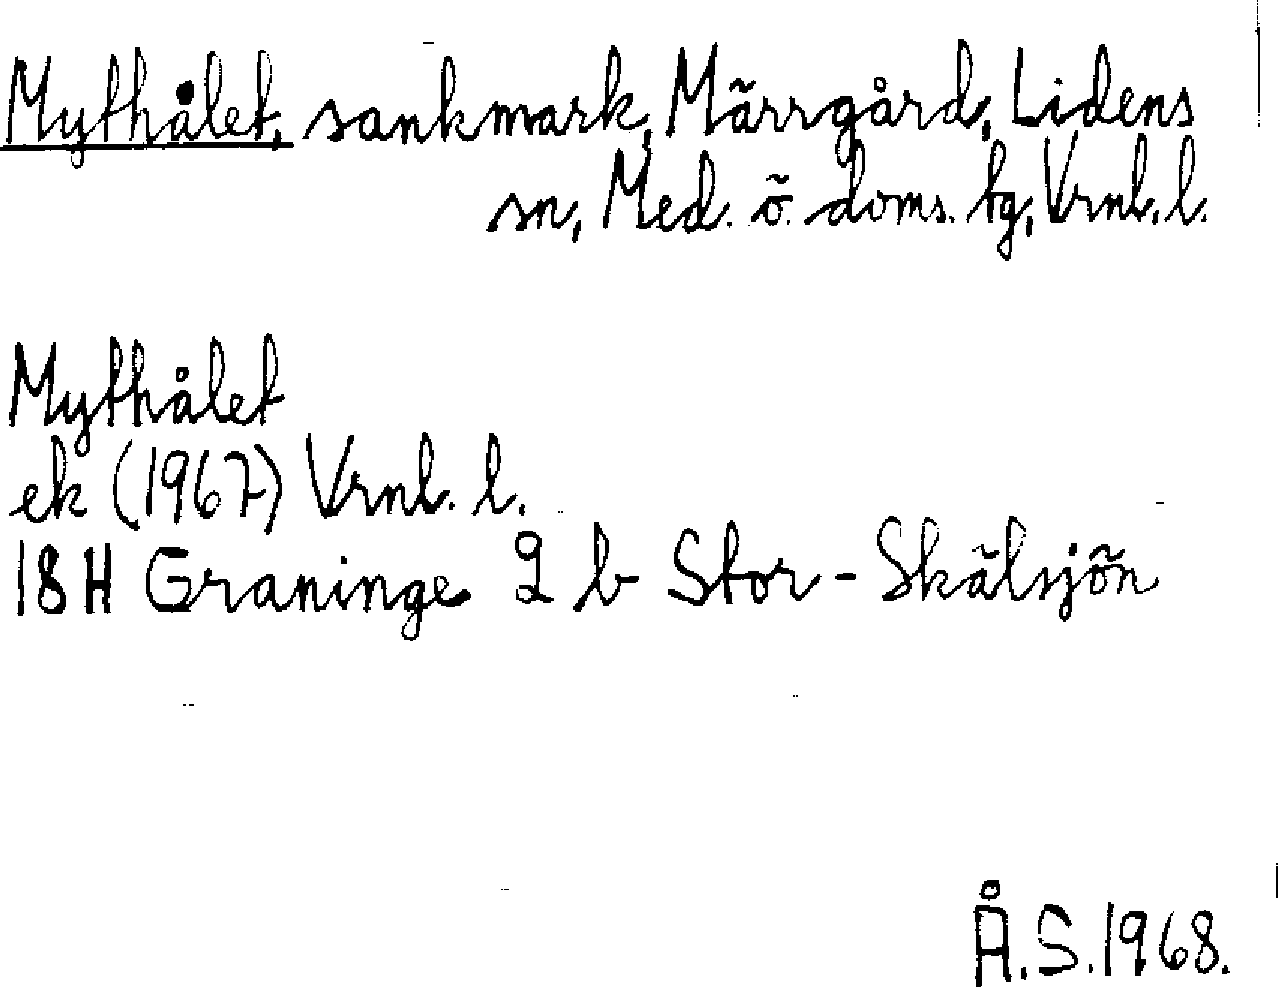 Mythålet, sankmark, Märrgård, Lidens
sn, Med. ö. doms. tg, Vrnl. l.
Mythålet
ek (1967) Vrnl. l.
18H Graninge 2 b Stor-Skälsjön
Å.S. 1968.